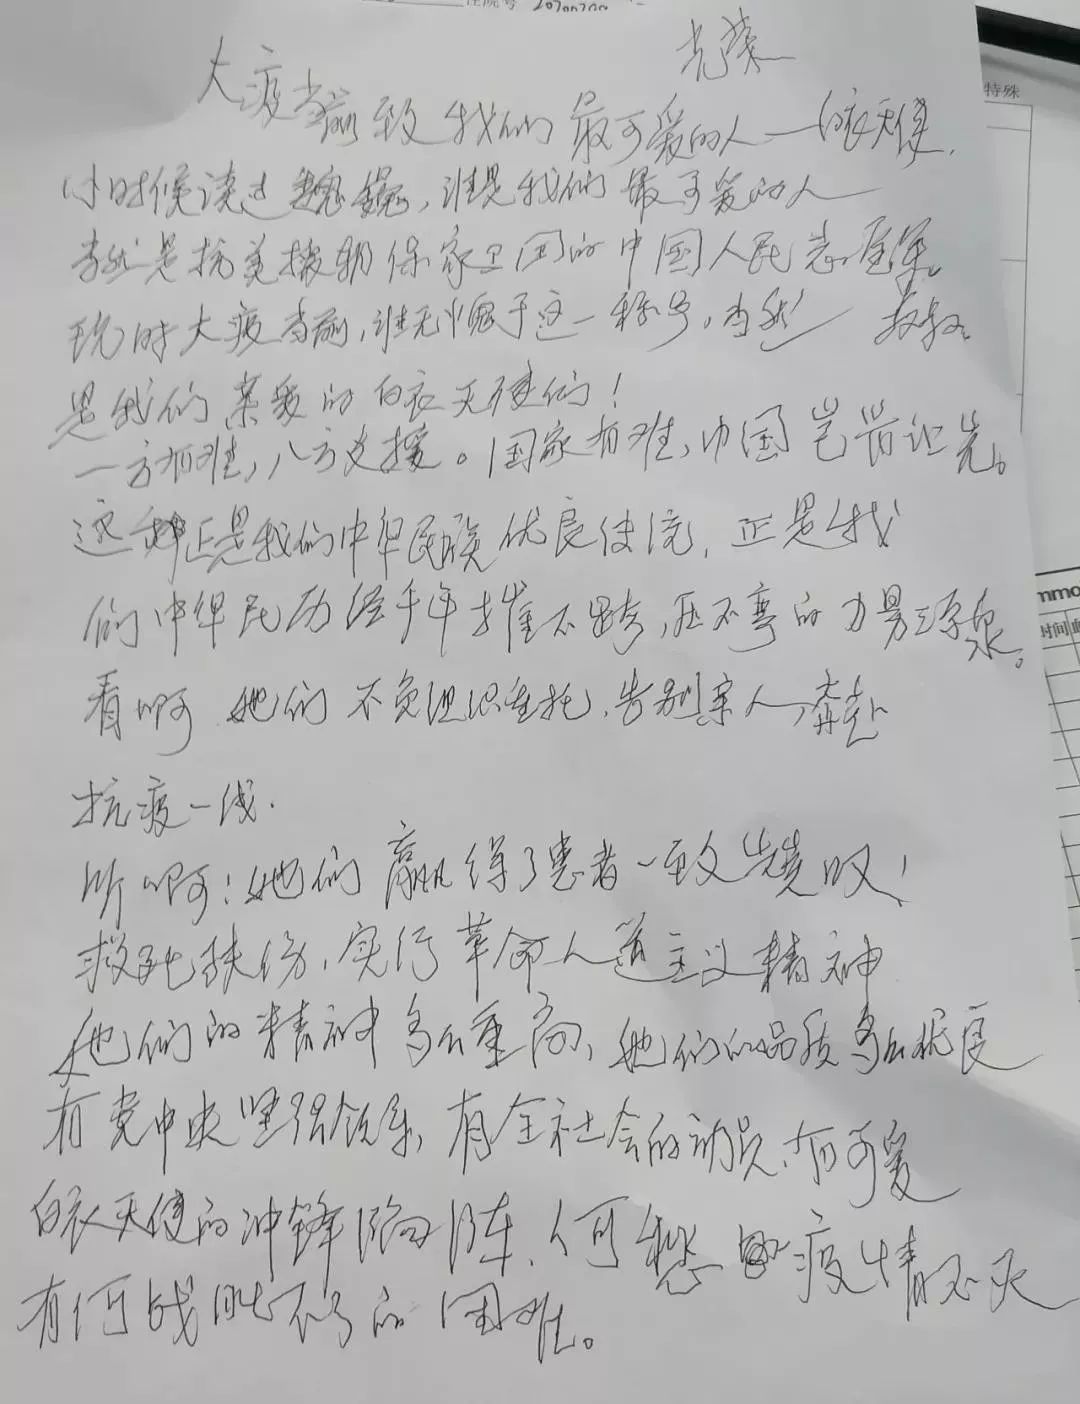 住院号
特殊
光荣
大疫当前致我们最可爱的人一白衣天使.
小时候读过魏巍,谁是我们最可爱的人
当然是抗美援朝保家卫国的中国人民志愿军。
现时大疫当前,谁无愧于这一称号,当然
是我们亲爱的白衣天使们!
一方有难,八方支援。国家有难,
这种正是我们中华民族优良传统,正是我
们中华民历经千年摧不垮,压不弯的力量源泉。
看啊 她们不负组织重托.告别亲人,奔赴
抗疫一线.
听啊!她们赢得了患者一致赞叹!
救死扶伤,实行革命人道主义精神
她们的精神多么重高、她们的品质多么优良
有党中央坚强领导,有全社会的动员、有可爱
白衣天使的冲锋陷阵、何愁疫情不灭
有何战胜不了的困难。
mmo
时间